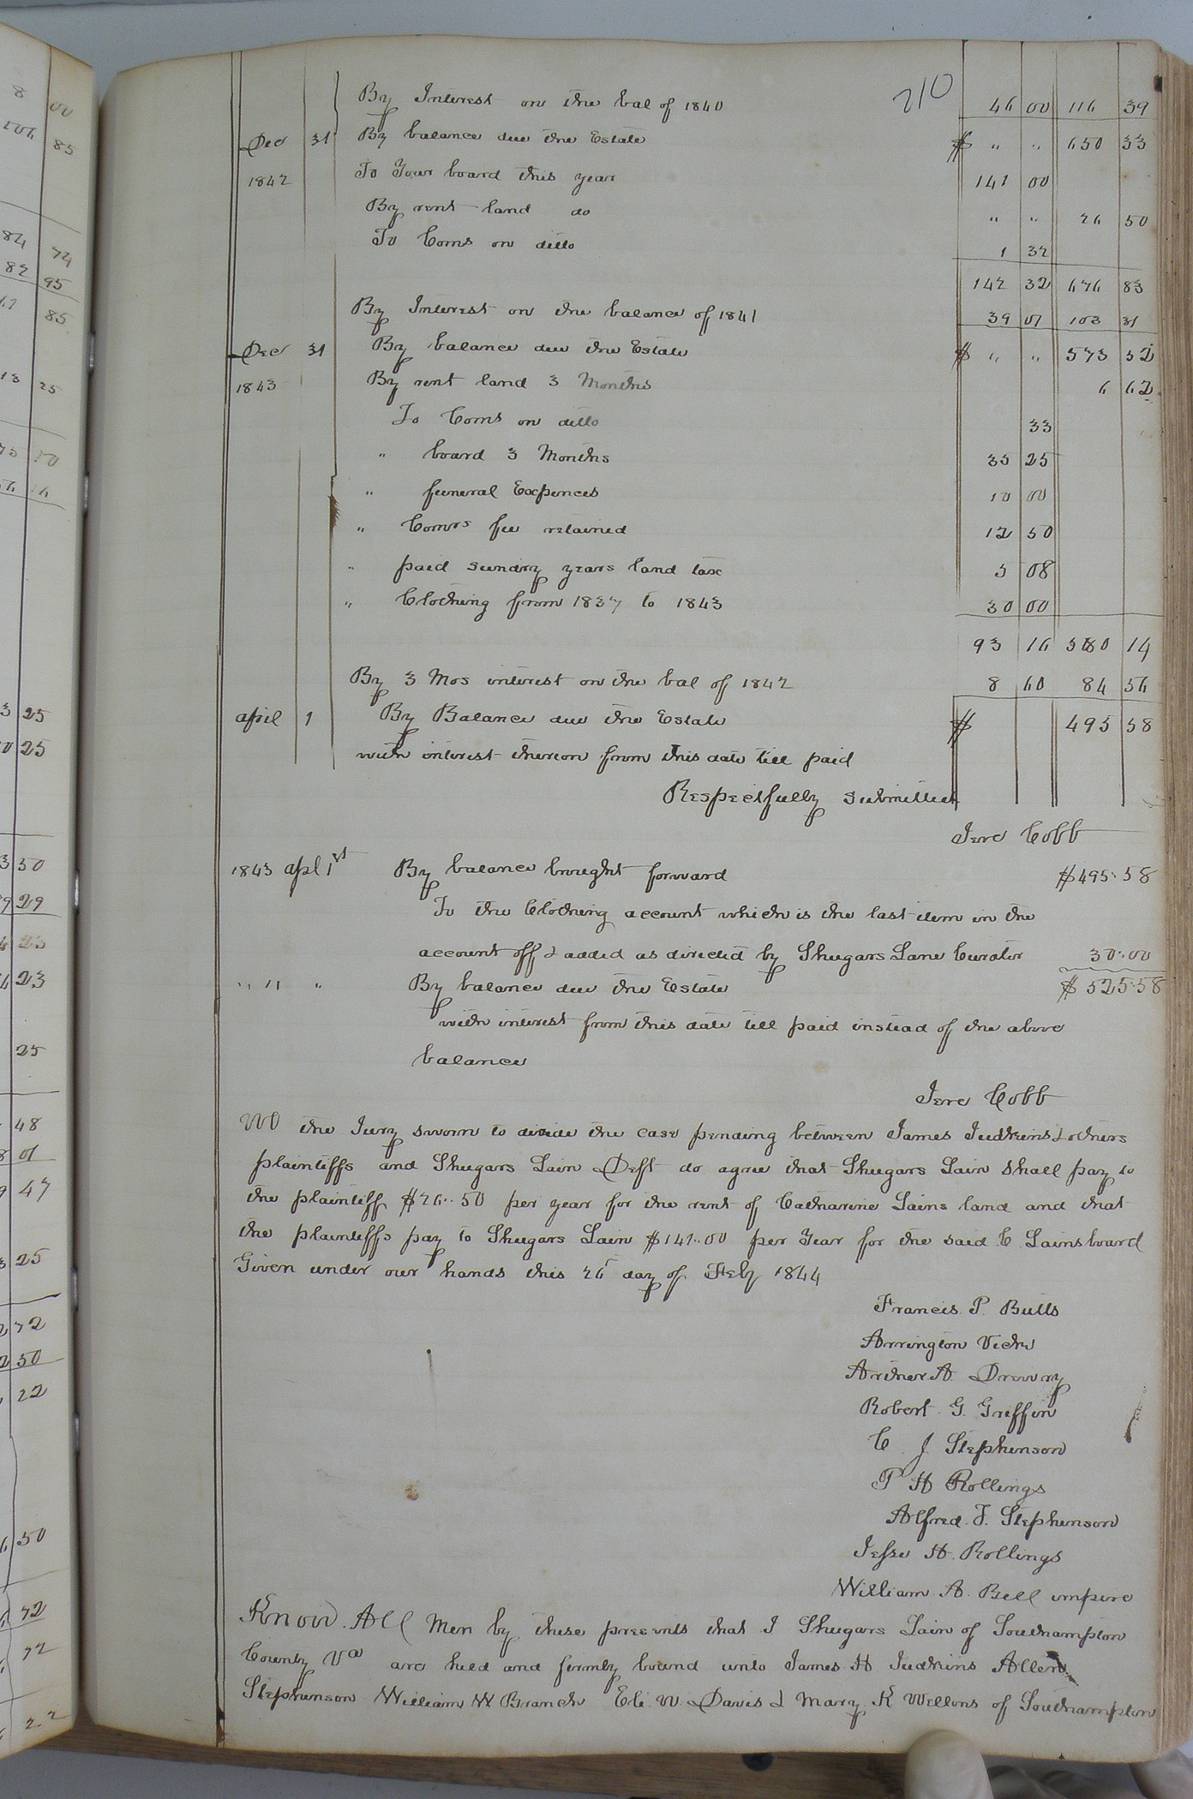 210
By Interest on the bal of 1840 46 00 116 39
Dec 31 By balance due the Estate $ " " 650 33
1842 To Your board this year 141 00
By rent land do " " 26 50
To Coms on ditto 1 32
142 32 676 83
By Interest on the balance of 1841 39 01 103 31
Dec 31 By balance due the Estate $ " " 573 52
1843 By rent land 3 Months 6 62
To Coms on ditto 33
" board 3 Months 35 25
" funeral Expences 10 00
" Comrs fee retained 12 50
" paid sundry years land tax 5 08
" Clothing from 1837 to 1843 30 00
93 16 580 14
By 3 Mos interest on the bal of 1842 8 60 84 56
april 1 By Balance due the Estate $ 495 58
with interest thereon from this date till paid
Respectfully submitted
Jere Cobb
1843 apl 1st By balance brought forward $495.58
To the Clothing account which is the last item in the
account off & added as directed by Shugars Lane Curator 30..00
" " " By balance due the Estate $525.58
with interest from this date till paid instead of the above
balance
Jere Cobb
We the Jury sworn to decide the case pending between James Judkins & others
plaintiffs and Shugars Lain Deft do agree that Shugars Lain shall pay to
the plaintiff $26..50 per year for the rent of Catharine Lains land and that
the plaintiffs pay to Shugars Lain $141..00 per Year for the said C Lains board
Given under our hands this 26 day of Feby 1844
Francis. P. Butts
Arrington Vick
Arther A. Drewry
Robert G. Griffin
C J Stephenson
P H Rollings
Alfred. J. Stephenson
Jesse H. Rollings
William A. Bell umpire
Know All Men by these presents that I Shugars Lain of Southampton
County Va are held and firmly bound unto James H Judkins Allen
Stephenson William W Branch Eli. W. Davis & Mary K Wellons of Southampton